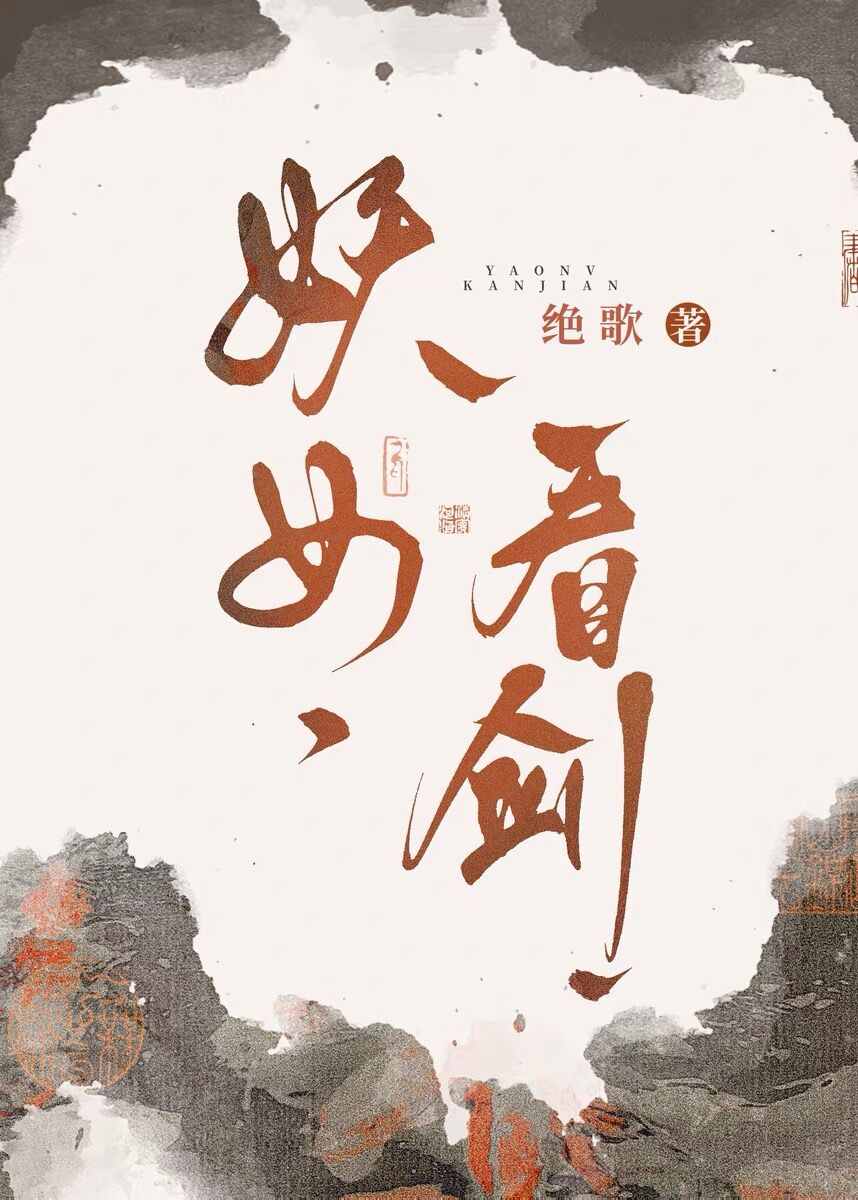 妖女
看剑
YAONV
KANJIAN
绝歌 著